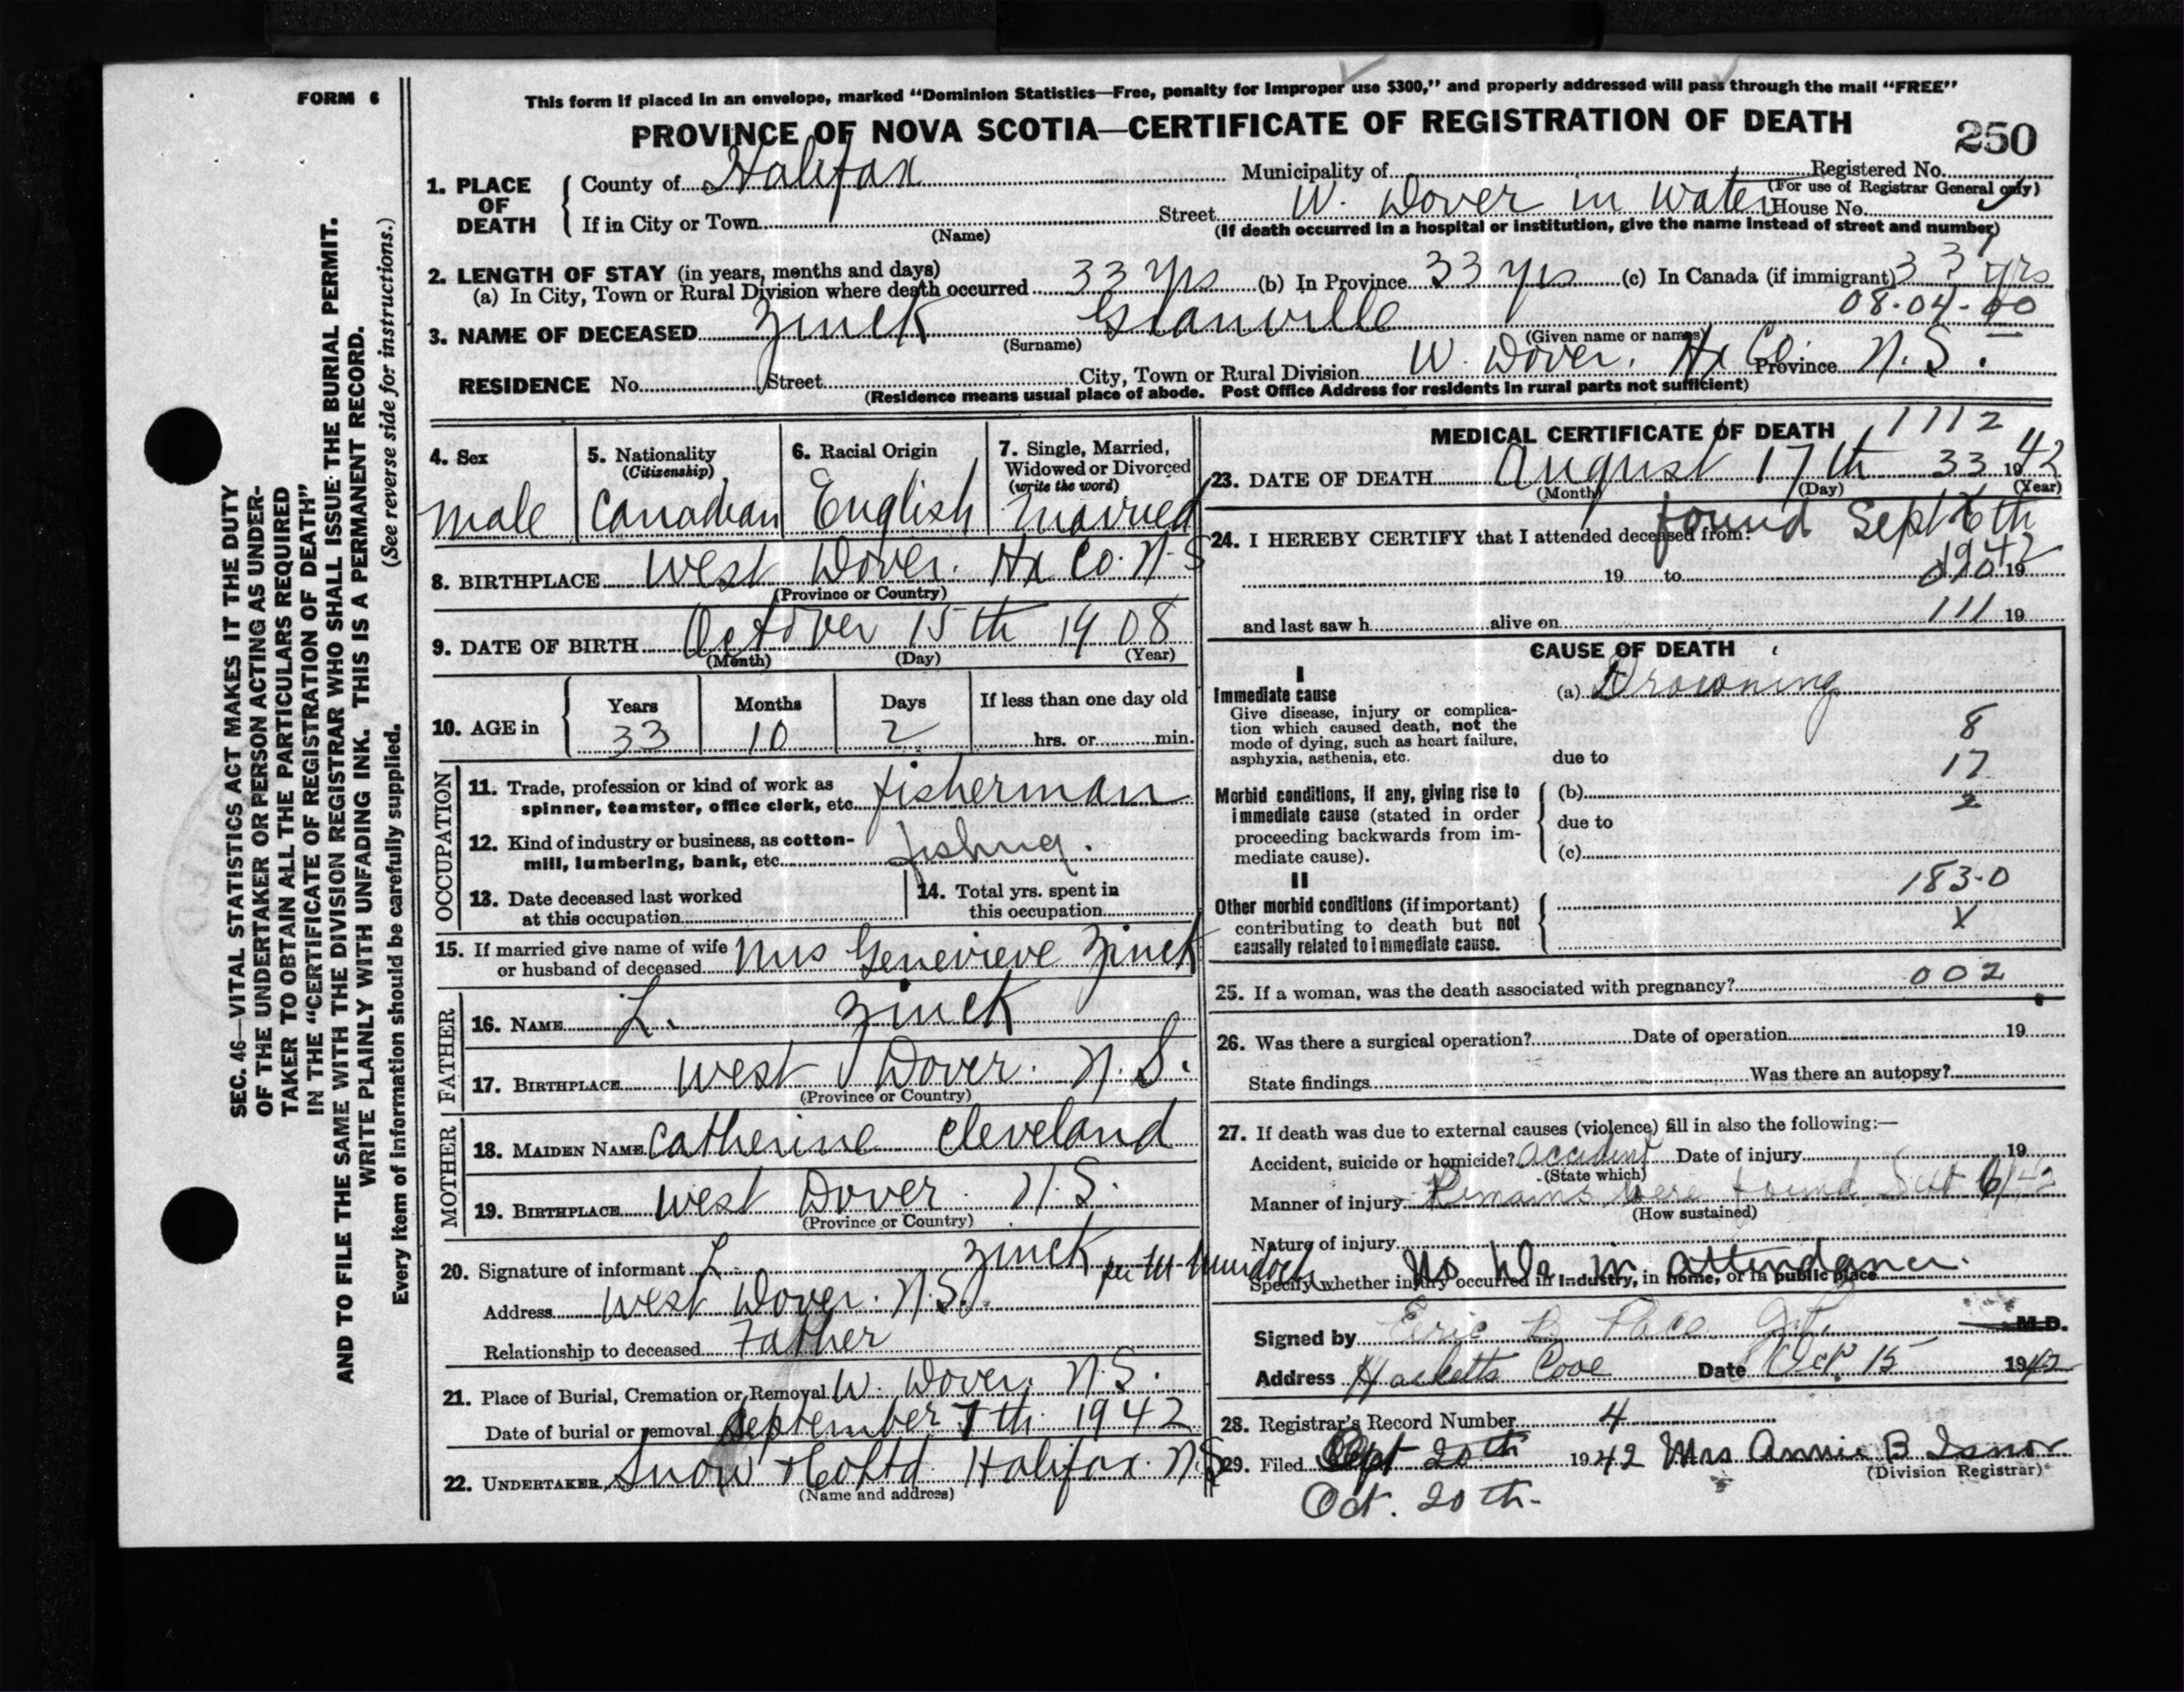 FORM 6
This form if placed in an envelope, marked "Dominion Statistics—Free, penalty for improper use $300," and properly addressed will pass through the mail "FREE"
PROVINCE OF NOVA SCOTIA—CERTIFICATE OF REGISTRATION OF DEATH
250
1. PLACE OF DEATH
County of Halifax Municipality of Registered No.
(For use of Registrar General only)
If in City or Town Street W. Dover in water House No.
(Name) (If death occurred in a hospital or institution, give the name instead of street and number)
2. LENGTH OF STAY (in years, months and days)
(a) In City, Town or Rural Division where death occurred 33 yrs (b) In Province 33 yrs (c) In Canada (if immigrant) 33 yrs
08-04-00
3. NAME OF DECEASED Zinck Glanville
(Surname) (Given name or names)
RESIDENCE No. Street City, Town or Rural Division W. Dover. Hx Co. Province N.S.
(Residence means usual place of abode. Post Office Address for residents in rural parts not sufficient)
4. Sex
male
5. Nationality
(Citizenship)
Canadian
6. Racial Origin
English
7. Single, Married, Widowed or Divorced
(write the word)
Married
8. BIRTHPLACE West Dover. Hx Co. N-S
(Province or Country)
9. DATE OF BIRTH October 15th 1908
(Month) (Day) (Year)
10. AGE in
Years Months Days If less than one day old
33 10 2 hrs. or min.
OCCUPATION
11. Trade, profession or kind of work as
spinner, teamster, office clerk, etc. fisherman
12. Kind of industry or business, as cotton-
mill, lumbering, bank, etc. fishing.
13. Date deceased last worked
at this occupation
14. Total yrs. spent in
this occupation
15. If married give name of wife
or husband of deceased Mrs Genevieve Zinck
FATHER
16. NAME L. Zinck
17. BIRTHPLACE West Dover. N.S.
(Province or Country)
MOTHER
18. MAIDEN NAME Catherine Cleveland
19. BIRTHPLACE West Dover. N.S.
(Province or Country)
20. Signature of informant L. Zinck per M Murdoch
Address West Dover. N.S.
Relationship to deceased Father
21. Place of Burial, Cremation or Removal W. Dover. N.S.
Date of burial or removal September 7th 1942
22. UNDERTAKER Snow & Co Ltd Halifax. N.S
(Name and address)
MEDICAL CERTIFICATE OF DEATH 1112
23. DATE OF DEATH August 17th 33 1942
(Month) (Day) (Year)
found Sept 6th
24. I HEREBY CERTIFY that I attended deceased from:
1942
19 to 19
111
and last saw h alive on 19
CAUSE OF DEATH
I
Immediate cause
Give disease, injury or complica-
tion which caused death, not the
mode of dying, such as heart failure,
asphyxia, asthenia, etc.
(a) Drowning
8
due to
17
Morbid conditions, if any, giving rise to
immediate cause (stated in order
proceeding backwards from im-
mediate cause).
(b)
2
due to
(c)
II
183-0
Other morbid conditions (if important)
contributing to death but not
causally related to immediate cause.
X
25. If a woman, was the death associated with pregnancy? 002
26. Was there a surgical operation? Date of operation 19
State findings Was there an autopsy?
27. If death was due to external causes (violence) fill in also the following:—
Accident, suicide or homicide? accident Date of injury 19
(State which)
Manner of injury Remains were found Sept 6/42
(How sustained)
Nature of injury
No Dr in attendance.
Specify whether injury occurred in industry, in home, or in public place
Signed by Eric B Pace J.P. M.D.
Address Hacketts Cove Date Oct. 15 1942
28. Registrar's Record Number 4
29. Filed Sept 20th 1942 Mrs Annie B Isnor
(Division Registrar)
Oct. 20th-
SEC. 46—VITAL STATISTICS ACT MAKES IT THE DUTY
OF THE UNDERTAKER OR PERSON ACTING AS UNDER-
TAKER TO OBTAIN ALL THE PARTICULARS REQUIRED
IN THE "CERTIFICATE OF REGISTRATION OF DEATH"
AND TO FILE THE SAME WITH THE DIVISION REGISTRAR WHO SHALL ISSUE THE BURIAL PERMIT.
WRITE PLAINLY WITH UNFADING INK. THIS IS A PERMANENT RECORD.
(See reverse side for instructions.)
Every item of information should be carefully supplied.